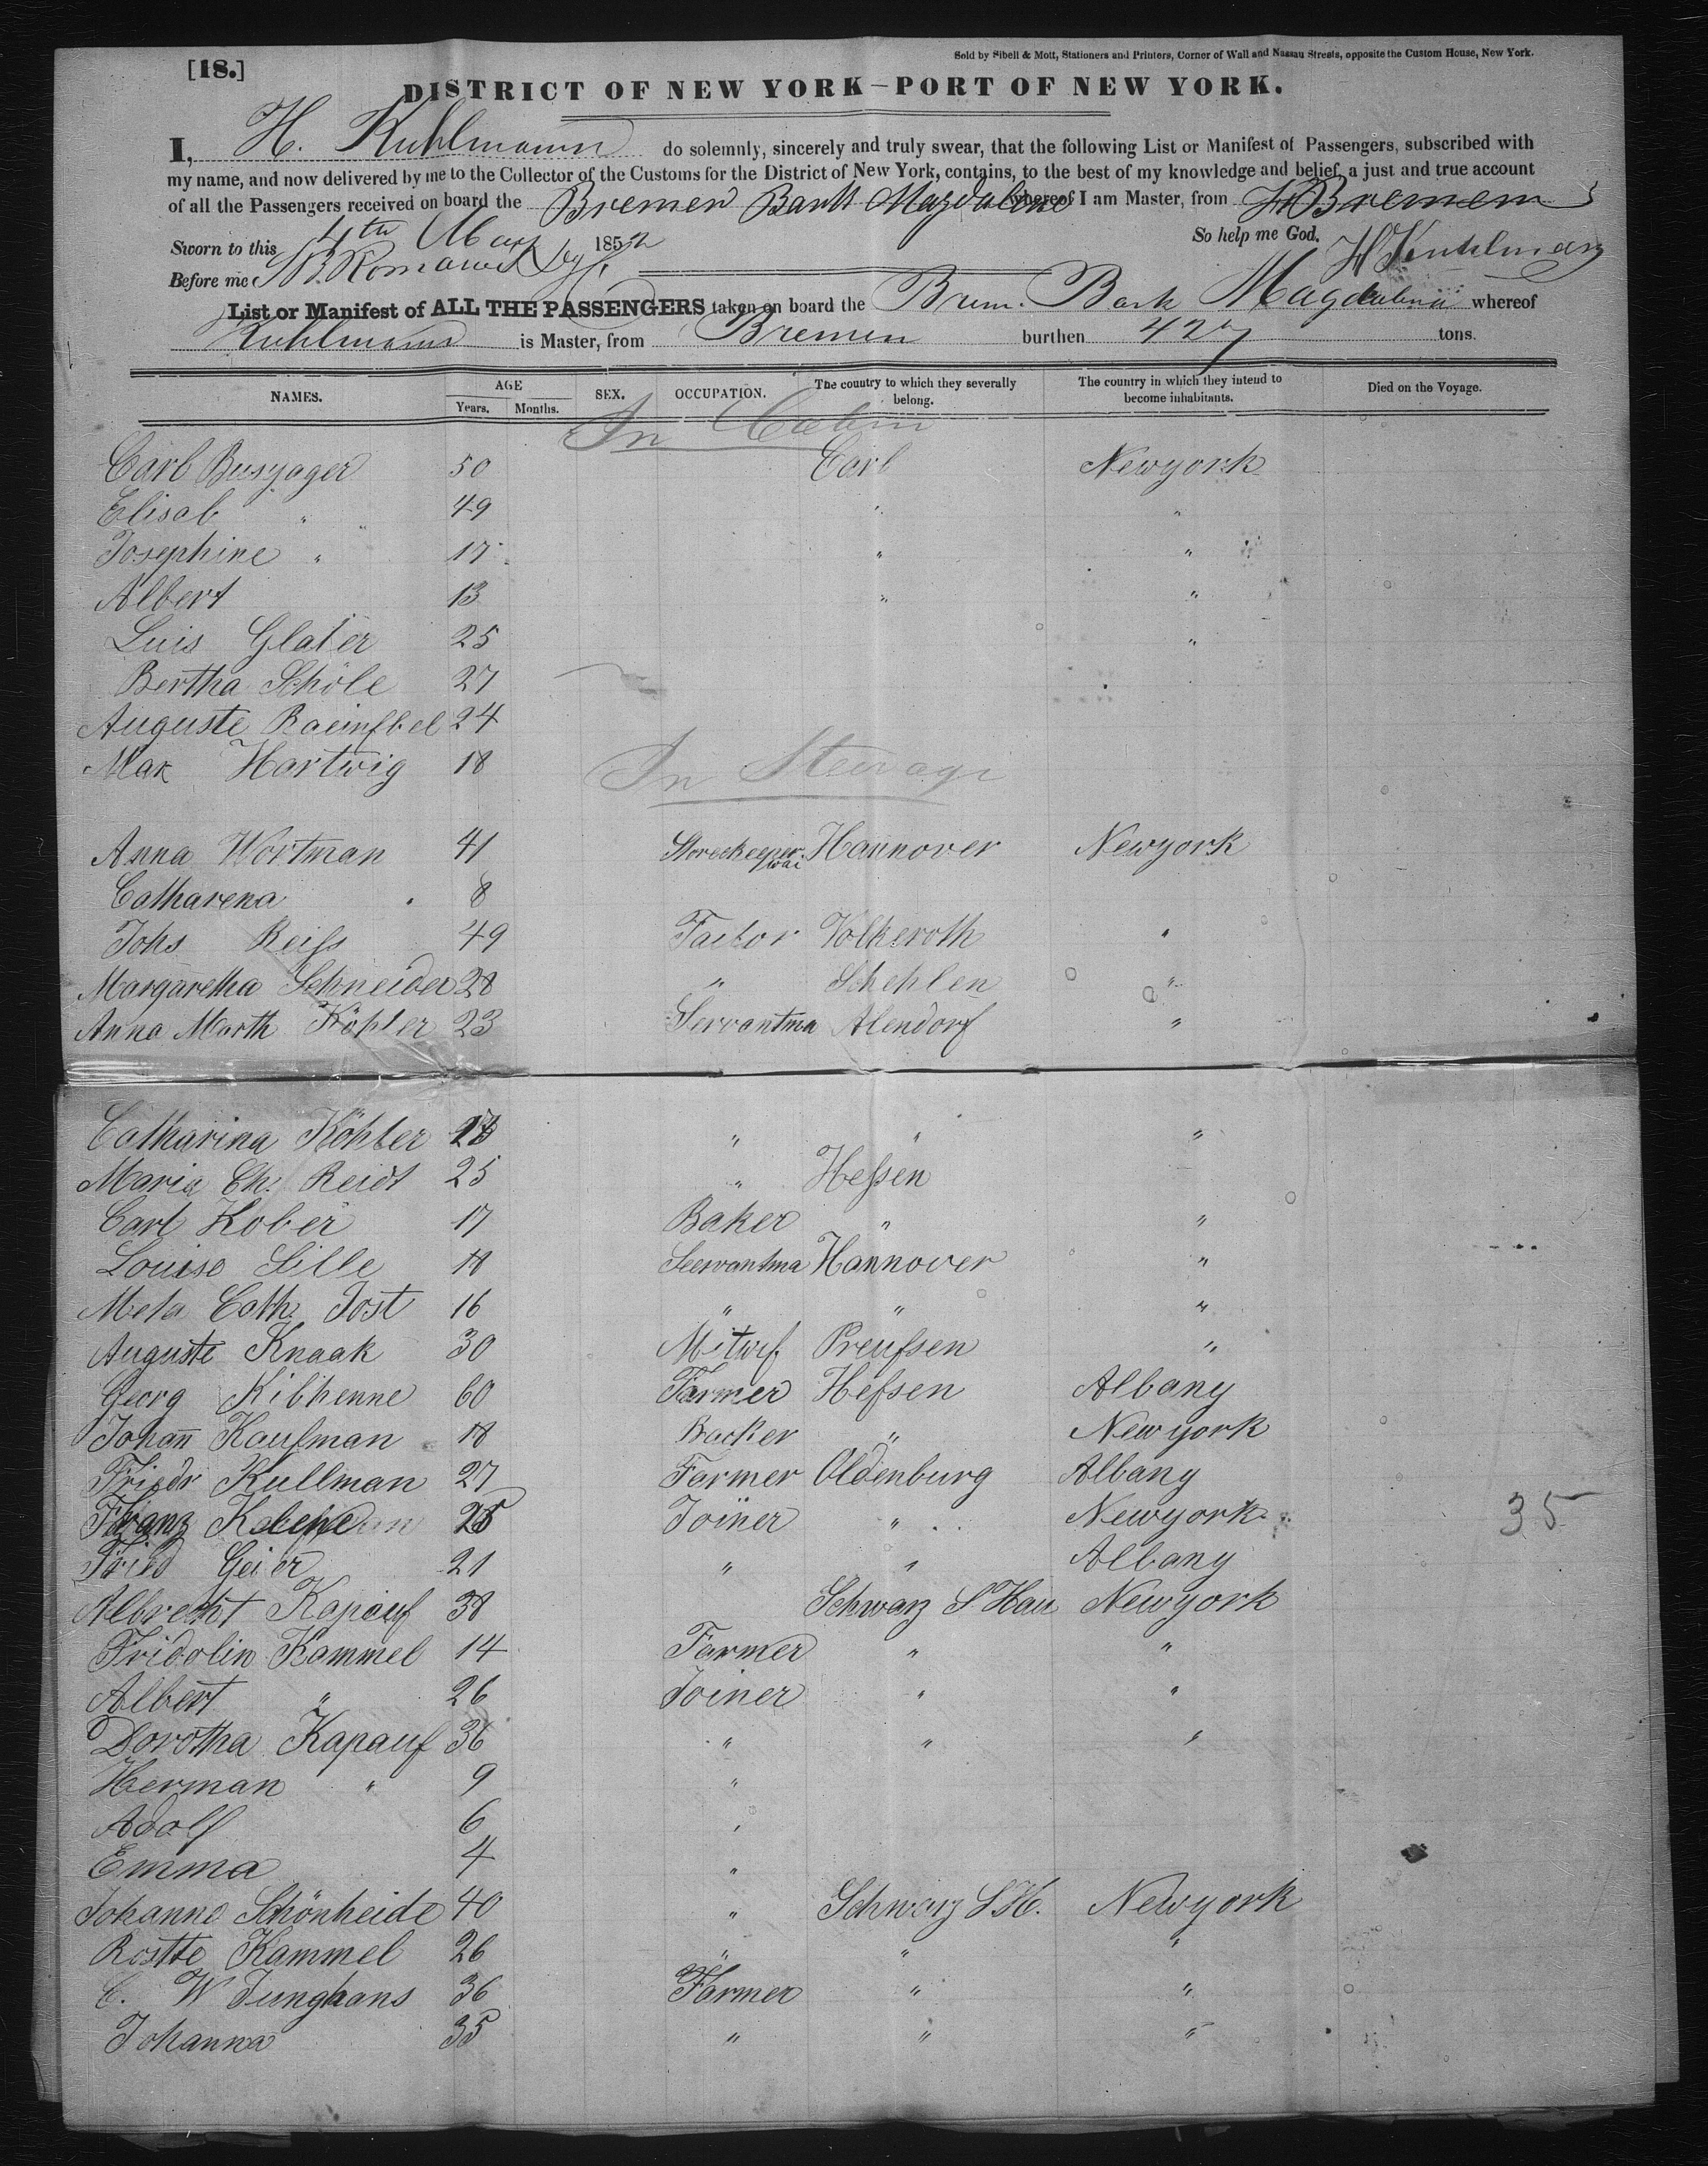 [18.]
Sold by Sibell & Mott, Stationers and Printers, Corner of Wall and Nassau Streets, opposite the Custom House, New York.
DISTRICT OF NEW YORK—PORT OF NEW YORK.
I, H. Kuhlmann do solemnly, sincerely and truly swear, that the following List or Manifest of Passengers, subscribed with
my name, and now delivered by me to the Collector of the Customs for the District of New York, contains, to the best of my knowledge and belief, a just and true account
of all the Passengers received on board the Bremen Bark Magdalene whereof I am Master, from Bremen
Sworn to this 4th May 1852 So help me God. H Kuhlmann
Before me
List or Manifest of ALL THE PASSENGERS taken on board the Brem. Bark Magdalena whereof
Kuhlmann is Master, from Bremen burthen 427 tons.
NAMES. AGE Years. Months. SEX. OCCUPATION. The country to which they severally belong. The country in which they intend to become inhabitants. Died on the Voyage.
In Cabin
Carl Busjager 50 Carl Newyork
Elisab " " 49 " "
Josephine " 17 " "
Albert 13 " "
Luis Glater 25 "
Bertha Schöle 27
Auguste 24
Max Hartwig 18
In Steerage
Anna Wortman 41 Storekeeper Hannover Newyork
Catharena 8
Johs Reiss 49 Factor Volkeroth "
Margaretha Schneider 28 " Schehlen "
Anna Marth Köhler 23 Servantma Alendorf "
Catharina Köhler " " "
Maria Ch. Reidt 25 " Hessen
Carl Kober 17 Baker " "
Louise Lille 18 Seervantma Hannover "
Meta Cath. Jost 16 " " "
Auguste Knaak 30 Mitwf Preussen "
Georg Kibhenne 60 Farmer Hessen Albany
Johan̄ Kaufman 18 Backer " Newyork
Friedr Kullman 27 Farmer Oldenburg Albany
Franz 25 Joiner " Newyork 35
Fried Geier 21 " " Albany
Albrecht Kapauf 38 Schwarz S Hau Newyork
Fridolin Kammel 14 Farmer " "
Albert " 26 Joiner " "
Dorotha Kapauf 36 " " "
Herman " 9 "
Adolf 6 "
Emma 4 "
Johanne Schönheide 40 " Schwarz S H. Newyork
Rostte Kammel 26 " " "
C. W Junghans 36 Farmer " "
Johanna 35 " " "